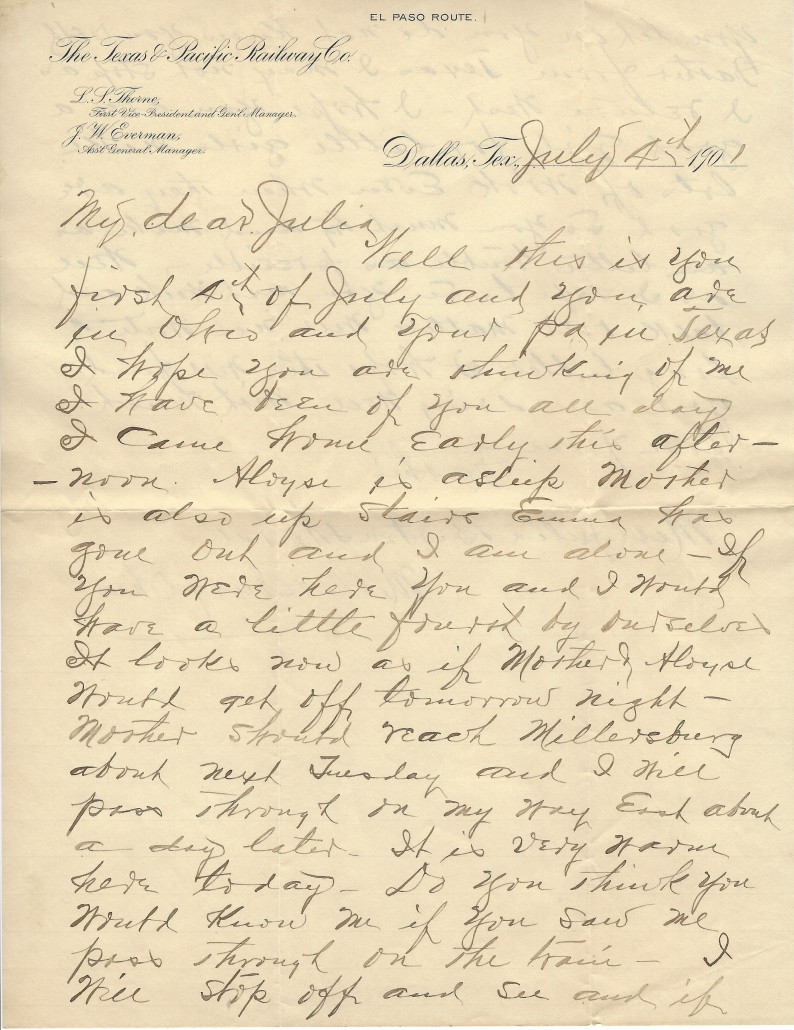 EL PASO ROUTE.
The Texas & Pacific Railway Co.
L. S. Thorne,
First Vice-President and Gen'l Manager.
J. W. Everman,
Ass't General Manager.
Dallas, Tex., July 4th 1901
My dear Julia
Well this is you
first 4th of July and you are
in Ohio and your pa in Texas
I hope you are thinking of me
I have been of you all day
I came home early this after-
- noon. Aloyse is asleep Mother
is also up stairs Emma has
gone out and I am alone - If
you were here you and I would
have a little by ourselves
It looks now as if Mother & Aloyse
would get off tomorrow night -
Mother should reach Millersburg
about next Tuesday and I will
pass through on my way East about
a day later - It is very warm
here today - Do you think you
would know me if you saw me
pass through on the train - I
will stop off and see and if